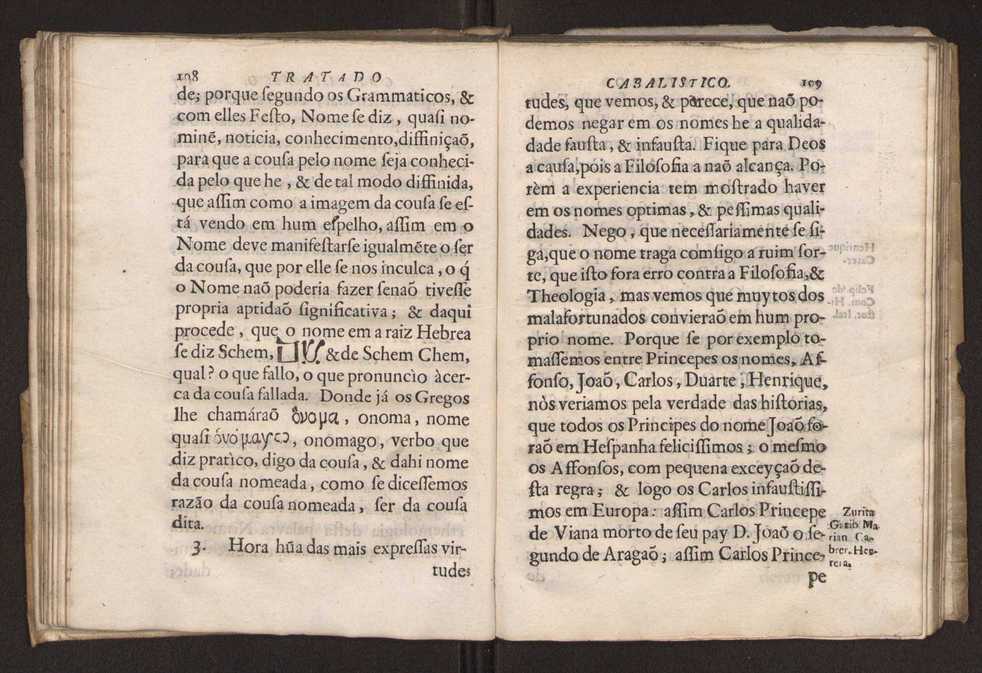 108 TRATADO
de; porque ſegundo os Grammaticos, &
com elles Feſto, Nome ſe diz, quaſi no-
minẽ, noticia, conhecimento, diffiniçaõ,
para que a couſa pelo nome ſeja conheci-
da pelo que he, & de tal modo diffinida,
que aſſim como a imagem da couſa ſe eſ-
tá vendo em hum eſpelho, aſſim em o
Nome deve manifeſtarſe igualmẽte o ſer
da couſa, que por elle ſe nos inculca, o q́
o Nome naõ poderia fazer ſenaõ tiveſſe
propria aptidaõ ſignificativa; & daqui
procede, que o nome em a raiz Hebrea
ſe diz Schem, שם & de Schem Chem,
qual? o que fallo, o que pronuncìo àcer-
ca da couſa fallada. Donde já os Gregos
lhe chamáraõ ὄνομα, onoma, nome
quaſi ὀνόμαγο, onomago, verbo que
diz pratìco, digo da couſa, & dahi nome
da couſa nomeada, como ſe diceſſemos
razão da couſa nomeada, ſer da couſa
dita.
3. Hora hũa das mais expreſſas vir-
tudes
CABALISTICO. 109
tudes, que vemos, & parece, que naõ po-
demos negar em os nomes he a qualida-
dade fauſta, & infauſta. Fique para Deos
a cauſa, pois a Filoſofia a naõ alcança. Po-
rèm a experiencia tem moſtrado haver
em os nomes optimas, & peſſimas quali-
dades. Nego, que neceſſariamente ſe ſi-
ga, que o nome traga comſigo a ruim ſor-
te, que iſto fora erro contra a Filoſofia, &
Theologia, mas vemos que muytos dos
malafortunados convieraõ em hum pro-
prio nome. Porque ſe por exemplo to-
maſſemos entre Princepes os nomes, Af-
fonſo, Joaõ, Carlos, Duarte, Henrique,
nòs veriamos pela verdade das hiſtorias,
que todos os Principes do nome Joaõ fo-
raõ em Heſpanha feliciſſimos; o meſmo
os Affonſos, com pequena exceyçaõ de-
ſta regra; & logo os Carlos infauſtiſſi-
mos em Europa: aſſim Carlos Princepe
de Viana morto de ſeu pay D. Joaõ o ſe-
gundo de Aragaõ; aſſim Carlos Prince-
pe
Zurita
Garib. Ma.
rian. Ca-
brer. Her-
rera.